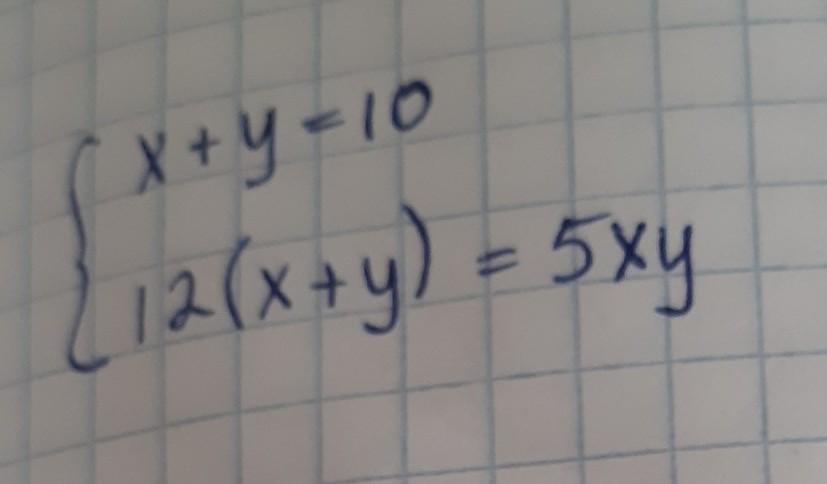 x + y = 10
12(x + y) = 5xy